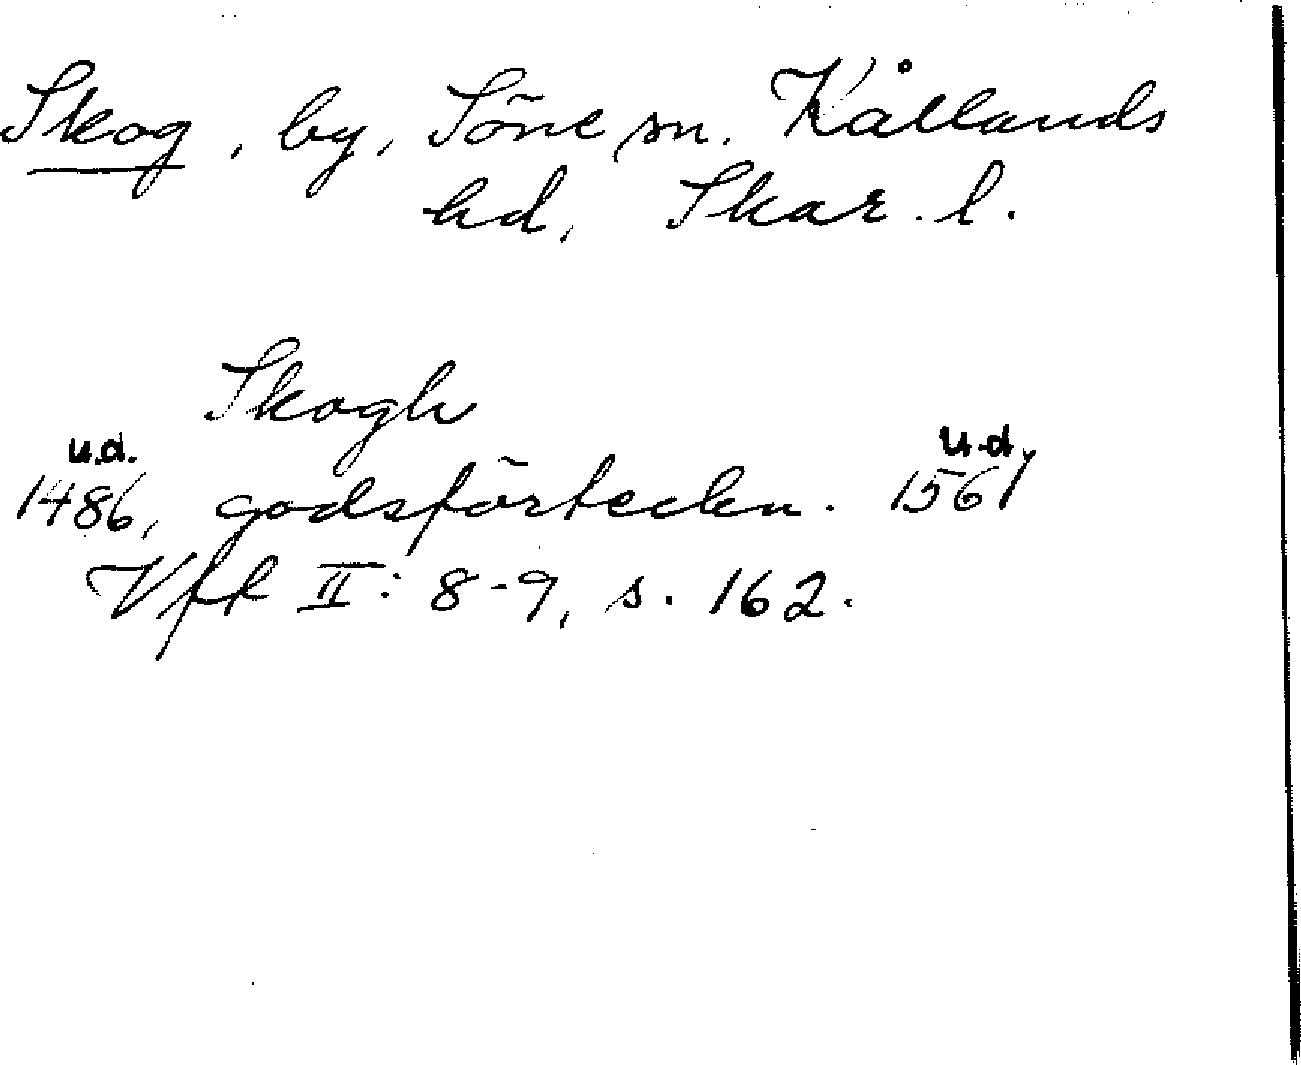 Skog, by, Söne sn. Kållands
hd, Skar. l.
Skogh
u.d. u.d.
1486, godsförteckn. 1561
Vff II: 8-9, s. 162.